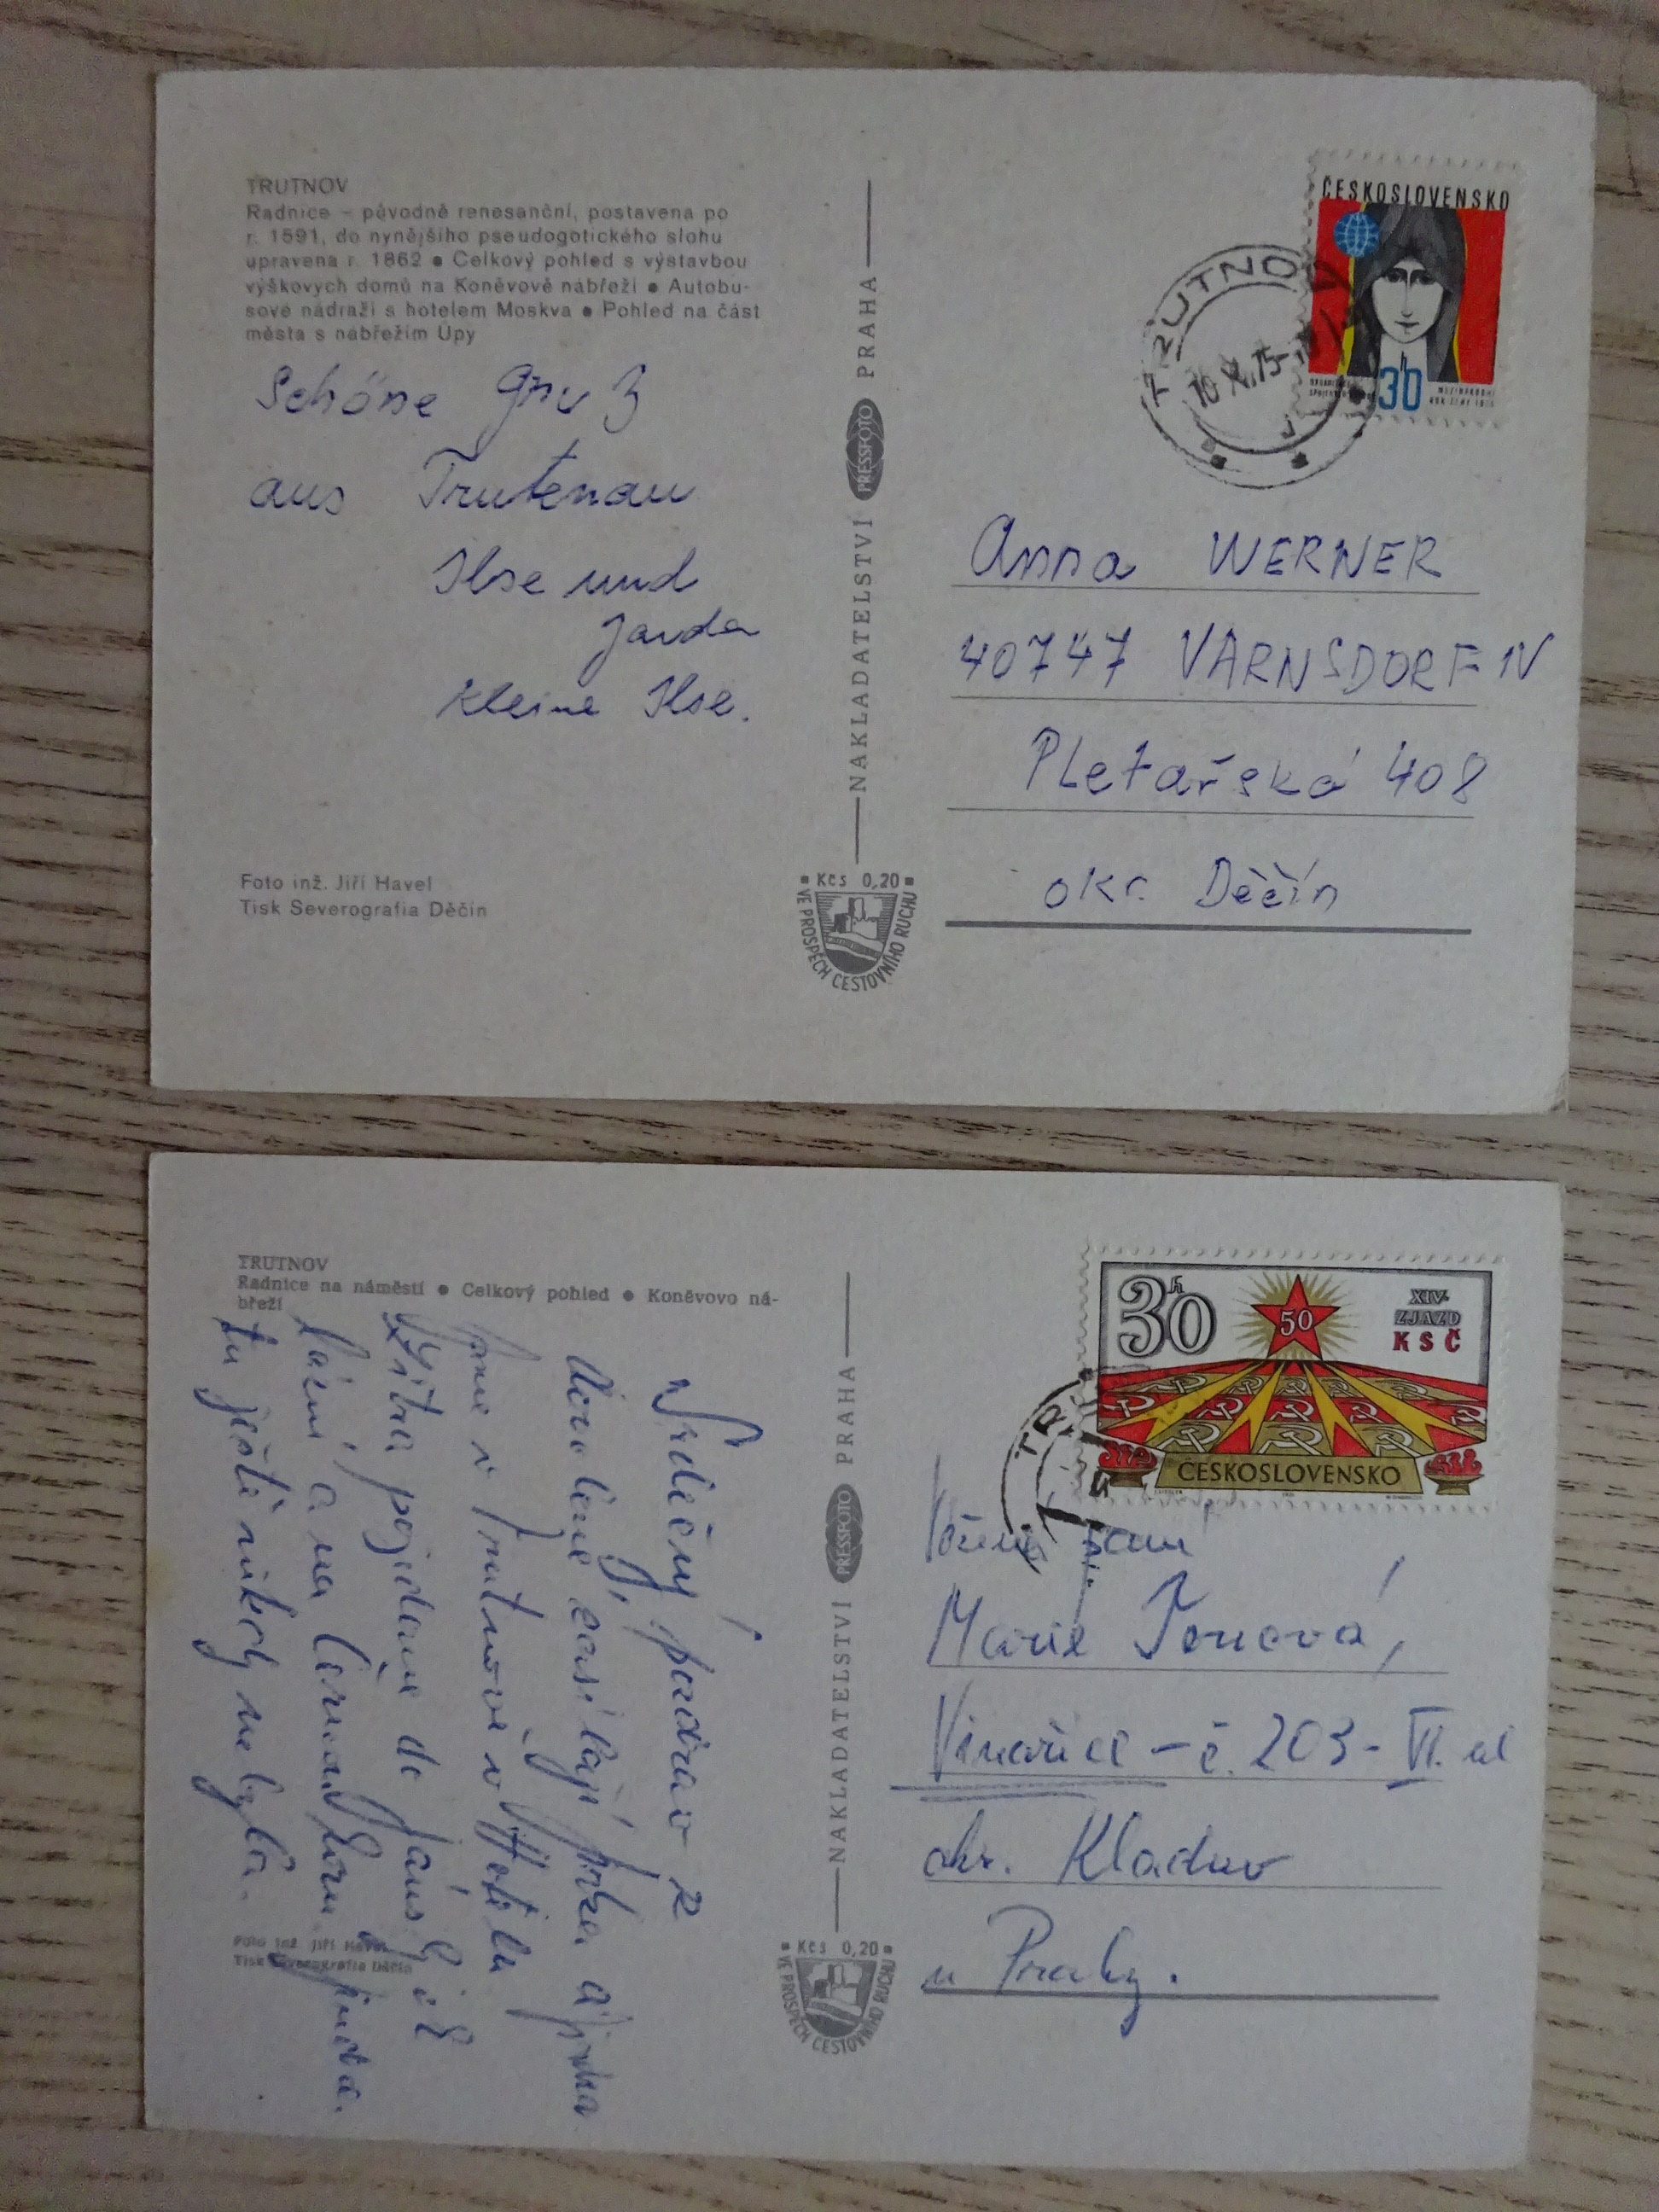 TRUTNOV
Radnice – původně renesanční, postavena po
r. 1591, do nynějšího pseudogotického slohu
upravena r. 1862 ● Celkový pohled s výstavbou
výškových domů na Koněvově nábřeží ● Autobu-
sové nádraží s hotelem Moskva ● Pohled na část
města s nábřežím Úpy
Schöne Gruß
aus Trutenau
Ilse und
Jarda
kleine Ilse.
Foto inž. Jiří Havel
Tisk Severografia Děčín
NAKLADATELSTVÍ PRESSFOTO PRAHA
Kčs 0,20
VE PROSPĚCH CESTOVNÍHO RUCHU
ČESKOSLOVENSKO
30 h
TRUTNOV
10.XI.75
Anna WERNER
40747 VARNSDORF IV
Pletařská 408
okr. Děčín
TRUTNOV
Radnice na náměstí ● Celkový pohled ● Koněvovo ná-
břeží
Srdečný pozdrav z
dovolené zasílají
jsme v Trutnově v Hotelu
Zítra pojedeme do Jánských
Lázní a na Černou horu
tu ještě nikdy nebyla.
Foto inž. Jiří Havel
Tisk Severografia Děčín
NAKLADATELSTVÍ PRESSFOTO PRAHA
Kčs 0,20
VE PROSPĚCH CESTOVNÍHO RUCHU
30 h
50
XIV.
ZJAZD
KSČ
ČESKOSLOVENSKO
TR
Vážená paní
Marie
Vinařice – č. 203 - VI. ul
okr. Kladno
u Prahy.